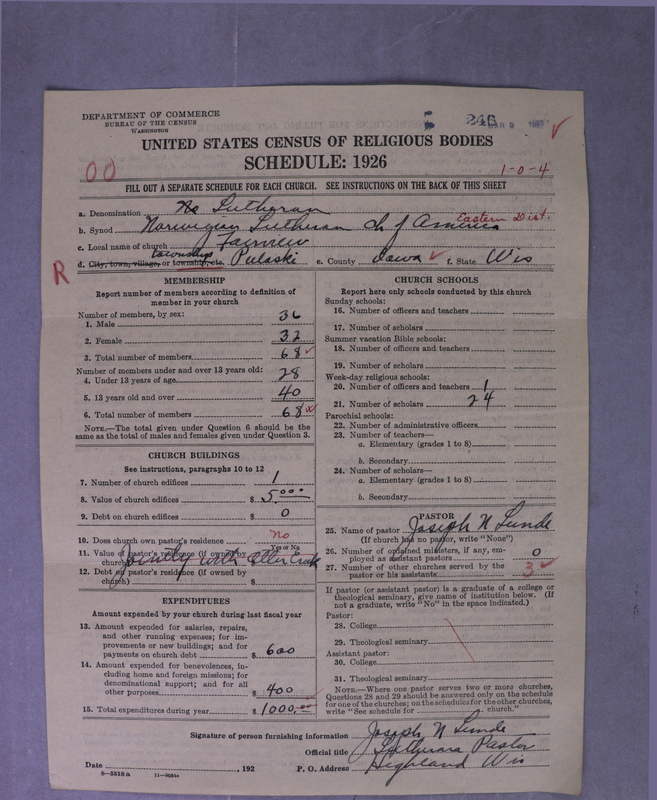 DEPARTMENT OF COMMERCE
BUREAU OF THE CENSUS
WASHINGTON
246 MAR 9 1927
UNITED STATES CENSUS OF RELIGIOUS BODIES
SCHEDULE: 1926
00
1-0-4
FILL OUT A SEPARATE SCHEDULE FOR EACH CHURCH. SEE INSTRUCTIONS ON THE BACK OF THIS SHEET
a. Denomination No Lutheran
b. Synod Norwegian Lutheran Ch of America Eastern Dist.
c. Local name of church Fairview
township
d. City, town, village, or township, etc. Pulaski e. County Iowa f. State Wis
R
MEMBERSHIP
Report number of members according to definition of
member in your church
Number of members, by sex:
1. Male 36
2. Female 32
3. Total number of members 68
Number of members under and over 13 years old:
4. Under 13 years of age 28
5. 13 years old and over 40
6. Total number of members 68
NOTE.—The total given under Question 6 should be
same as the total of males and females given under Question 3.
CHURCH BUILDINGS
See instructions, paragraphs 10 to 12
7. Number of church edifices 1
8. Value of church edifices $ 500.
9. Debt on church edifices $ 0
10. Does church own pastor's residence no
Yes or No
11. Value of pastor's residence (if owned by
church) Jointly with other
12. Debt on pastor's residence (if owned by
church) $
EXPENDITURES
Amount expended by your church during last fiscal year
13. Amount expended for salaries, repairs,
and other running expenses; for im-
provements or new buildings; and for
payments on church debt $ 600
14. Amount expended for benevolences, in-
cluding home and foreign missions; for
denominational support; and for all
other purposes $ 400
15. Total expenditures during year $ 1000.00
CHURCH SCHOOLS
Report here only schools conducted by this church
Sunday schools:
16. Number of officers and teachers
17. Number of scholars
Summer vacation Bible schools:
18. Number of officers and teachers
19. Number of scholars
Week-day religious schools:
20. Number of officers and teachers 1
21. Number of scholars 24
Parochial schools:
22. Number of administrative officers
23. Number of teachers—
a. Elementary (grades 1 to 8)
b. Secondary
24. Number of scholars—
a. Elementary (grades 1 to 8)
b. Secondary
PASTOR
25. Name of pastor Joseph N Lunde
(If church has no pastor, write "None")
26. Number of ordained ministers, if any, em-
ployed as assistant pastors 0
27. Number of other churches served by the
pastor or his assistants 3
If pastor (or assistant pastor) is a graduate of a college or
theological seminary, give name of institution below. (If
not a graduate, write "No" in the space indicated.)
Pastor:
28. College
29. Theological seminary
Assistant pastor:
30. College
31. Theological seminary
NOTE.—Where one pastor serves two or more churches,
Questions 28 and 29 should be answered only on the schedule
for one of the churches; on the schedules for the other churches,
write "See schedule for church."
Signature of person furnishing information Joseph N Lunde
Official title Lutheran Pastor
Date , 192 P. O. Address Highland Wis
8-5518a 11-9034